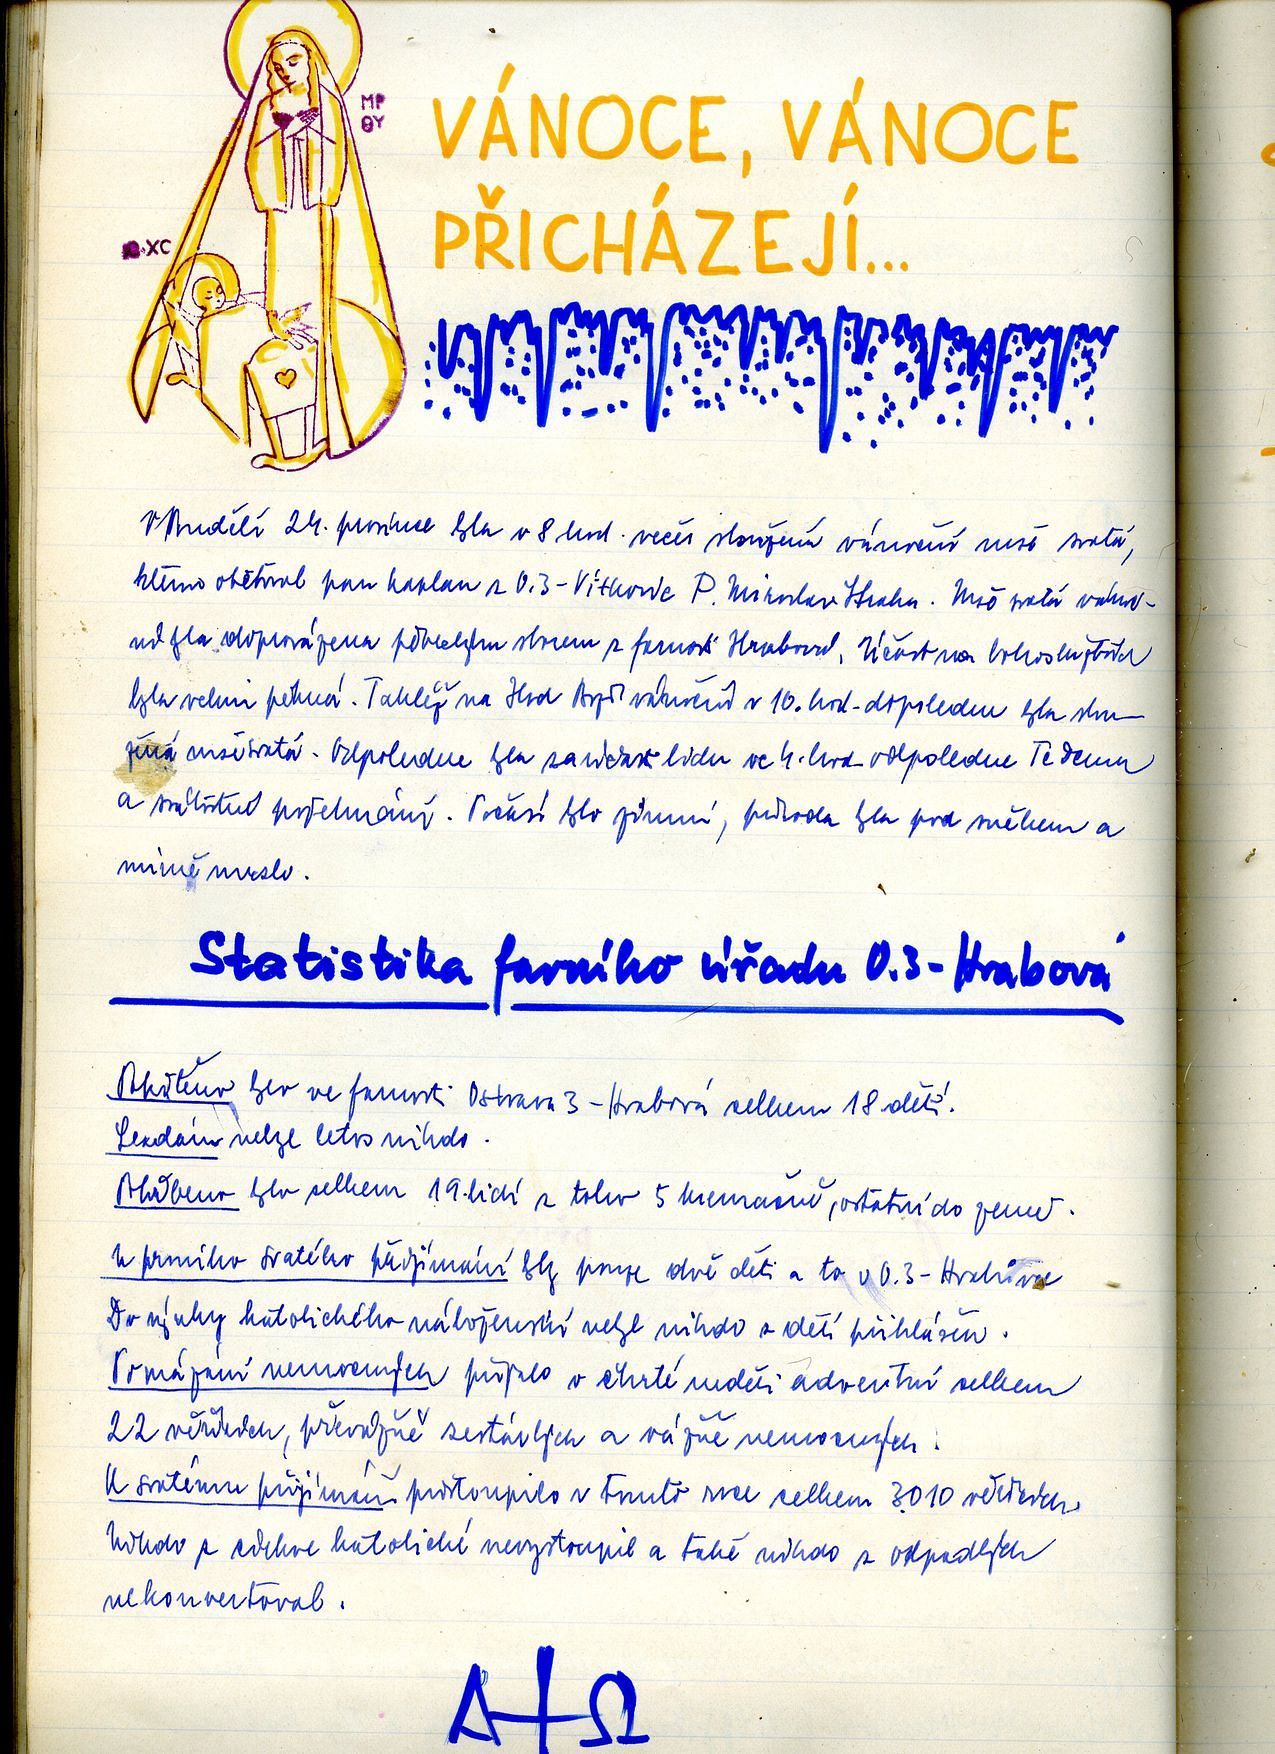 MP
ΘY
VÁNOCE, VÁNOCE
XC
PŘICHÁZEJÍ...
V neděli 24. prosince byla v 8 hod. večer sloužená vánoční mše svatá,
kterou obětoval pan kaplan z O.3-Vítkovic P. Miroslav Mše svatá vánoč-
ní byla doprovázena pěveckým sborem z farnosti Hrabová. Účast na bohoslužbách
byla velmi pěkná. Taktéž na Hod Boží vánoční v 10. hod. dopoledne byla slou-
žená mše svatá. Odpoledne byla za účasti lidu ve 4. hod. odpoledne Te Deum
a svátostné požehnání. Počasí bylo zimní, příroda byla pod sněhem a
mírně mrzlo.
Statistika farního úřadu O.3-Hrabová
Pokřtěno bylo ve farnosti Ostrava 3-Hrabová celkem 18 dětí.
nebyl letos nikdo.
Pohřbeno bylo celkem 19 lidí z toho 5 kremačně, ostatní do země.
U prvního svatého přijímání byly pouze dvě děti a to v O.3-Hrabůvce
Do výuky katolického náboženství nebyl nikdo z dětí přihlášen.
Pomazání nemocných přijalo v čtvrté neděli adventní celkem
22 věřících, převážně zestárlých a vážně nemocných.
K svatému přijímání přistoupilo v tomto roce celkem 3010 věřících.
Nikdo z církve katolické nevystoupil a také nikdo z odpadlých
nekonvertoval.
A Ω